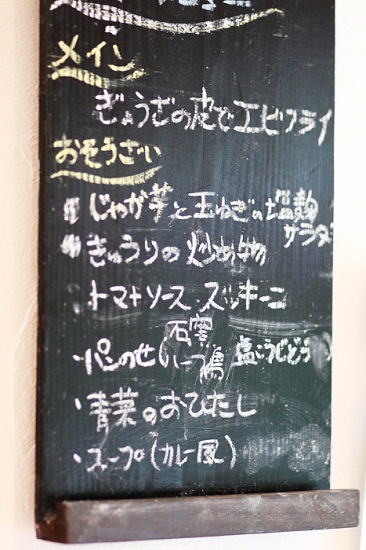 メイン
ぎょうざの皮でエビフライ
おそうざい
じゃが芋と玉ねぎの塩麹
サラダ
きゅうりの炒め物
トマトソース・ズッキーニ
・青菜のおひたし
・スープ(カレー風)